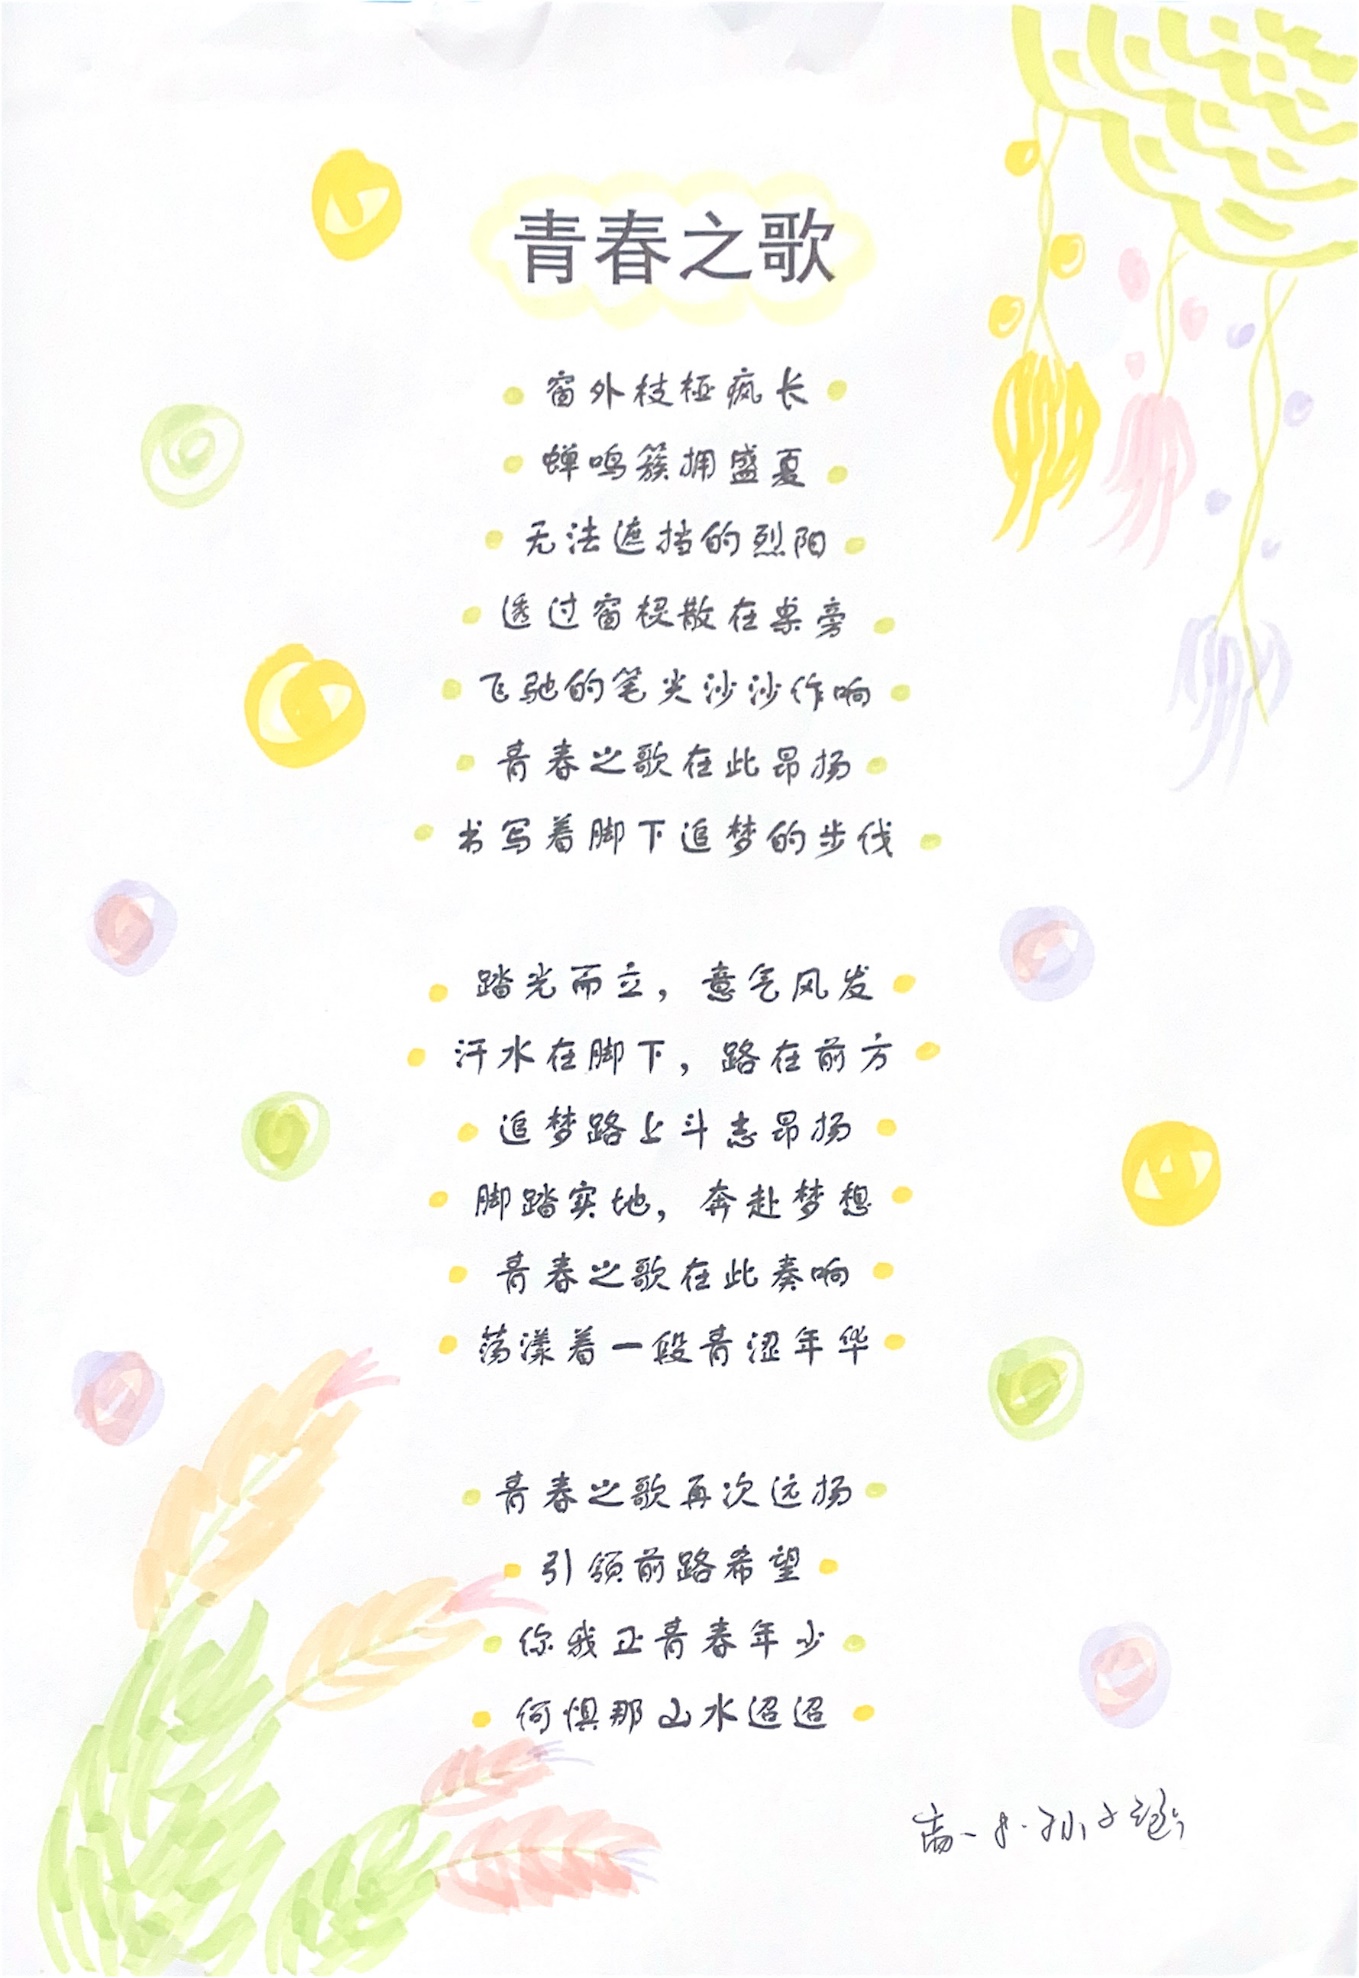 青春之歌
窗外枝桠疯长
蝉鸣簇拥盛夏
无法遮挡的烈阳
透过窗棂散在桌旁
飞驰的笔尖沙沙作响
青春之歌在此昂扬
书写着脚下追梦的步伐
踏光而立，意气风发
汗水在脚下，路在前方
追梦路上斗志昂扬
脚踏实地，奔赴梦想
青春之歌在此奏响
荡漾着一段青涩年华
青春之歌再次远扬
引领前路希望
你我正青春年少
何惧那山水迢迢
高一 孙子